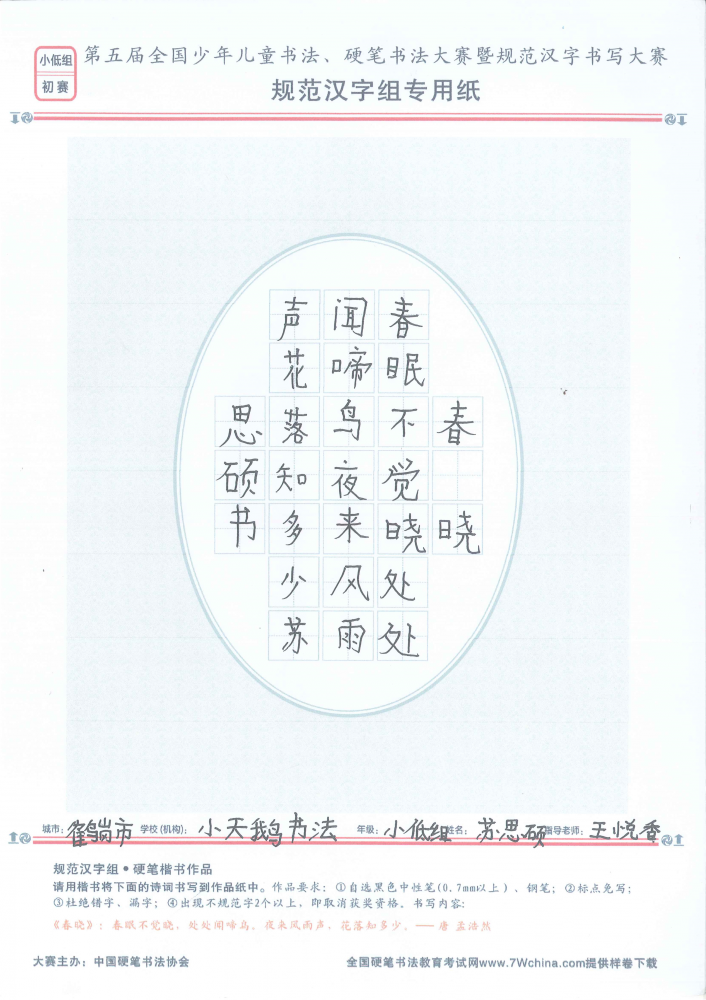 小低组
初赛
第五届全国少年儿童书法、硬笔书法大赛暨规范汉字书写大赛
规范汉字组专用纸
春晓
春眠不觉晓处处
闻啼鸟夜来风雨
声花落知多少苏
思硕书
城市：鹤岗市 学校(机构)：小天鹅书法 年级：小低组 姓名：苏思硕 指导老师：王悦香
规范汉字组•硬笔楷书作品
请用楷书将下面的诗词书写到作品纸中。作品要求：①自选黑色中性笔(0.7mm以上)、钢笔；②标点免写；
③杜绝错字、漏字；④出现不规范字2个以上，即取消获奖资格。书写内容：
《春晓》：春眠不觉晓，处处闻啼鸟。夜来风雨声，花落知多少。——唐 孟浩然
大赛主办：中国硬笔书法协会
全国硬笔书法教育考试网www.7Wchina.com提供样卷下载